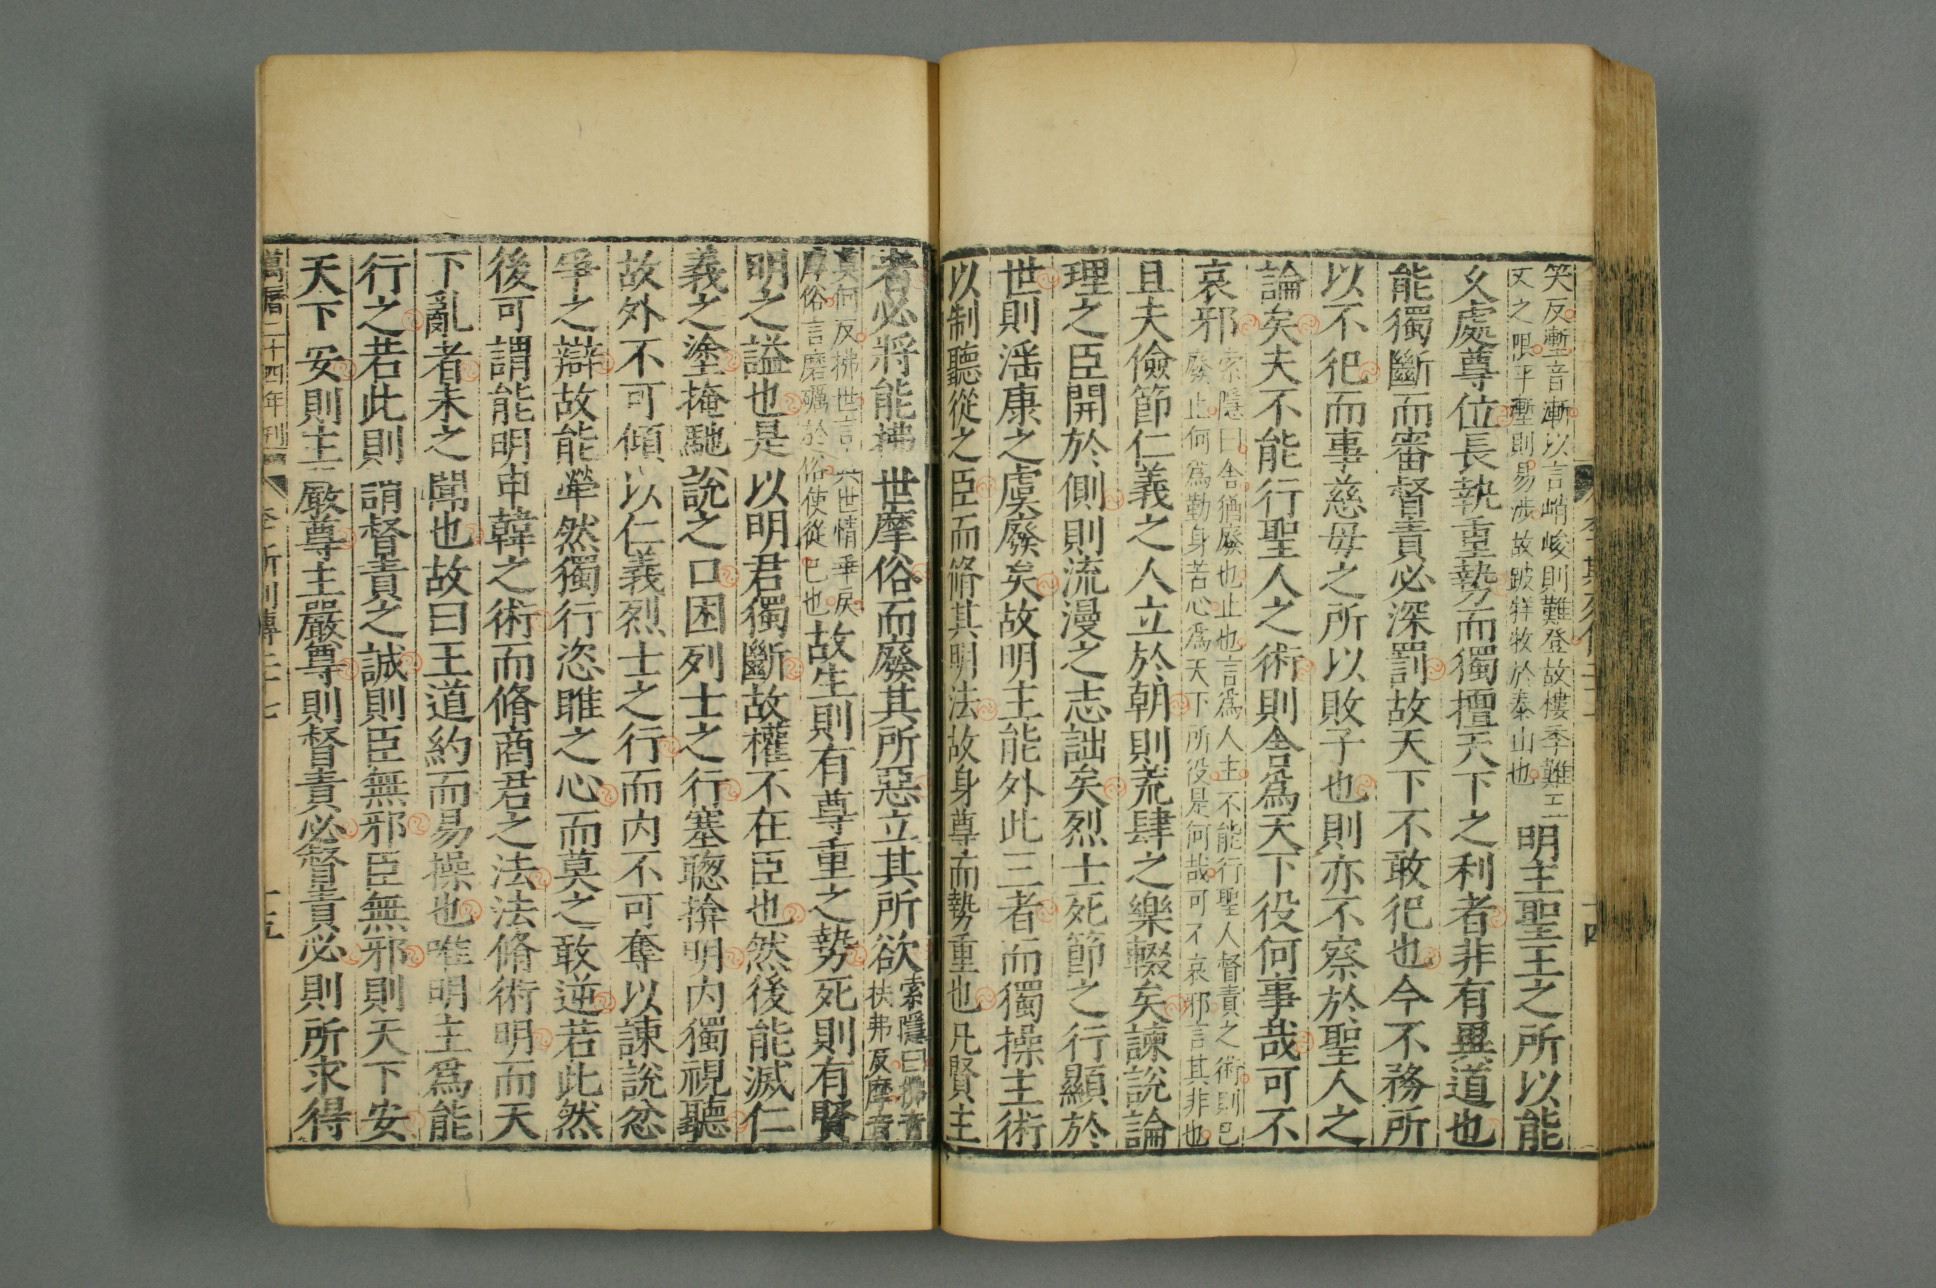 笑反塹音漸以言峭峻則難登故樓季難五
丈之限平塹則易涉故跛牂牧於泰山也
明主聖王之所以能
久處尊位長執重勢而獨擅天下之利者非有異道也
能獨斷而審督責必深罰故天下不敢犯也今不務所
以不犯而事慈母之所以敗子也則亦不察於聖人之
論矣夫不能行聖人之術則舍爲天下役何事哉可不
哀邪
索隱曰舍猶廢也止也言爲人主不能行聖人督責之術則已
廢止何爲勤身苦心爲天下所役是何哉可不哀邪言其非也
且夫儉節仁義之人立於朝則荒肆之樂輟矣諫說論
理之臣開於側則流漫之志詘矣烈士死節之行顯於
世則淫康之虞廢矣故明主能外此三者而獨操主術
以制聽從之臣而脩其明法故身尊而勢重也凡賢主
者必將能拂世摩俗而廢其所惡立其所欲
索隱曰拂音
扶弗反摩音
莫何反拂世言
世情乖戾
摩俗言磨礪於俗使從己也
故生則有尊重之勢死則有賢
明之謚也是以明君獨斷故權不在臣也然後能滅仁
義之塗掩馳說之口困列士之行塞聦揜明內獨視聽
故外不可傾以仁義烈士之行而內不可奪以諫說忿
爭之辯故能犖然獨行恣睢之心而莫之敢逆若此然
後可謂能明申韓之術而脩商君之法法脩術明而天
下亂者未之聞也故曰王道約而易操也唯明主爲能
行之若此則謂督責之誠則臣無邪臣無邪則天下安
天下安則主嚴尊主嚴尊則督責必督責必則所求得
萬曆二十四年刊
李斯列傳二十七
十五